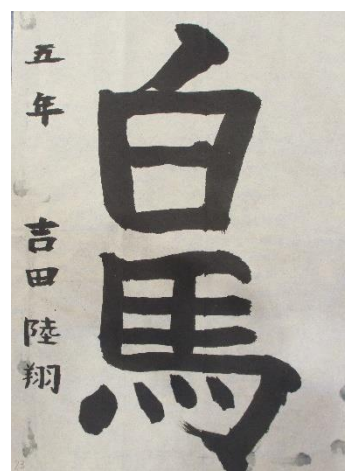 白馬
五年 吉田 陸翔
23